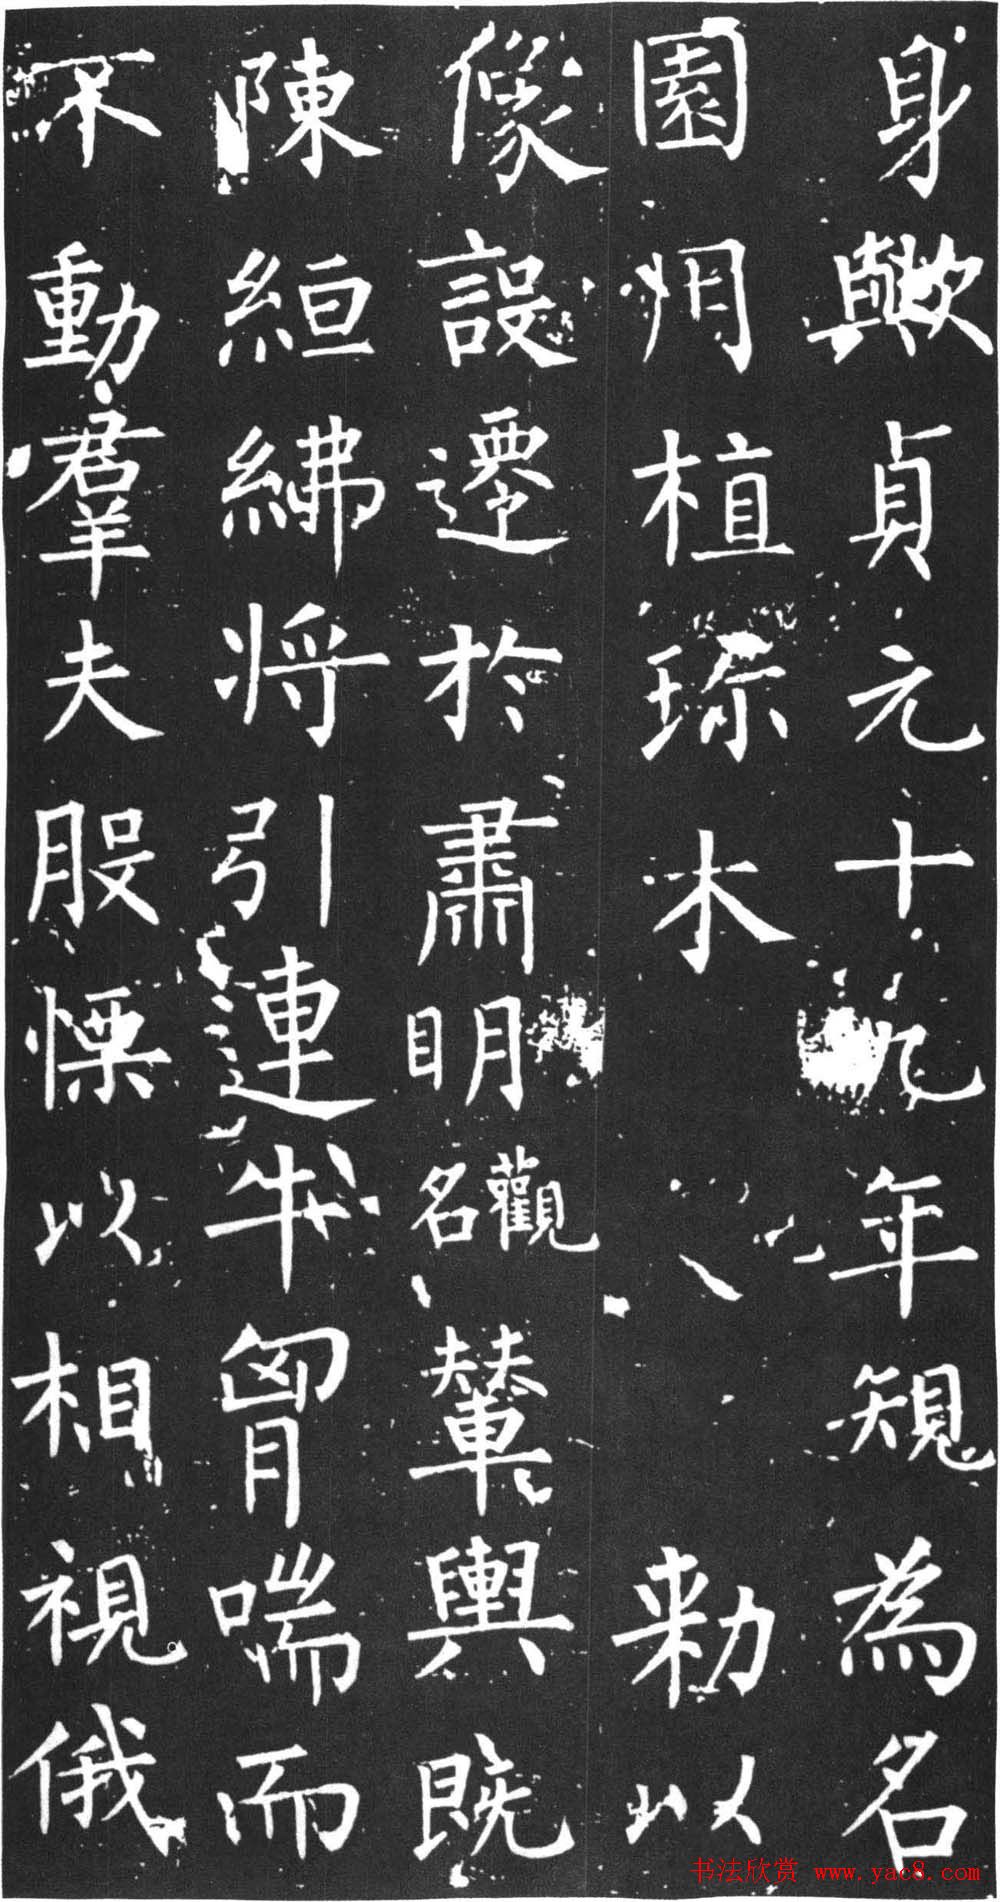 身歟貞元十九年規為名
園用植珎木勑以
像設遷於肅眀觀名輦輿既
陳絙紼將引連牛胷喘而
不動羣夫股慄以相視俄
书法欣赏 www.yac8.com